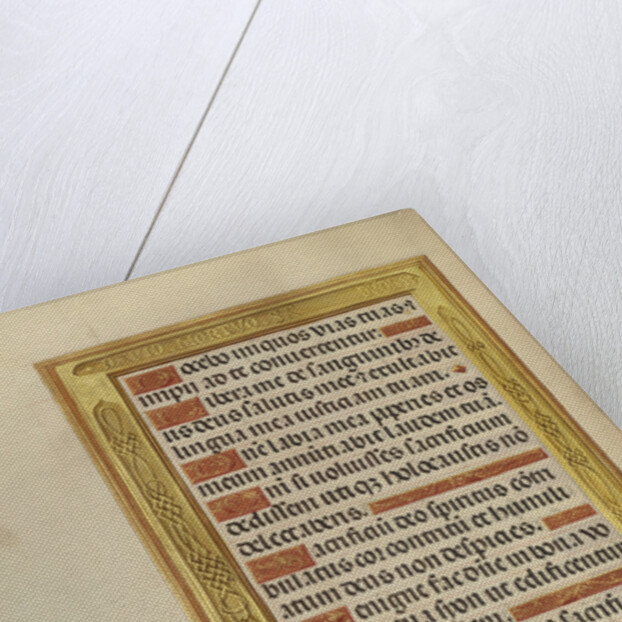 Docebo iniquos vias tuas ?
impii ad te convertentur
Libera me de sanguinibꝫ de
us deus salutis mee ? exultabit
lingua mea iusticiam tuam.
Dñe labia mea aperies et os
meum annunciabit laudem tuã
Qñi si voluisses sacrificium
dedissem utiqꝫ holocaustis nõ
delectaberis.
Sacrificiũ deo spiritus cõtri
bulatus cor contritũ et humili
atum deus non despicies.
Benigne fac dñe in bona vo
syon ut edificentur